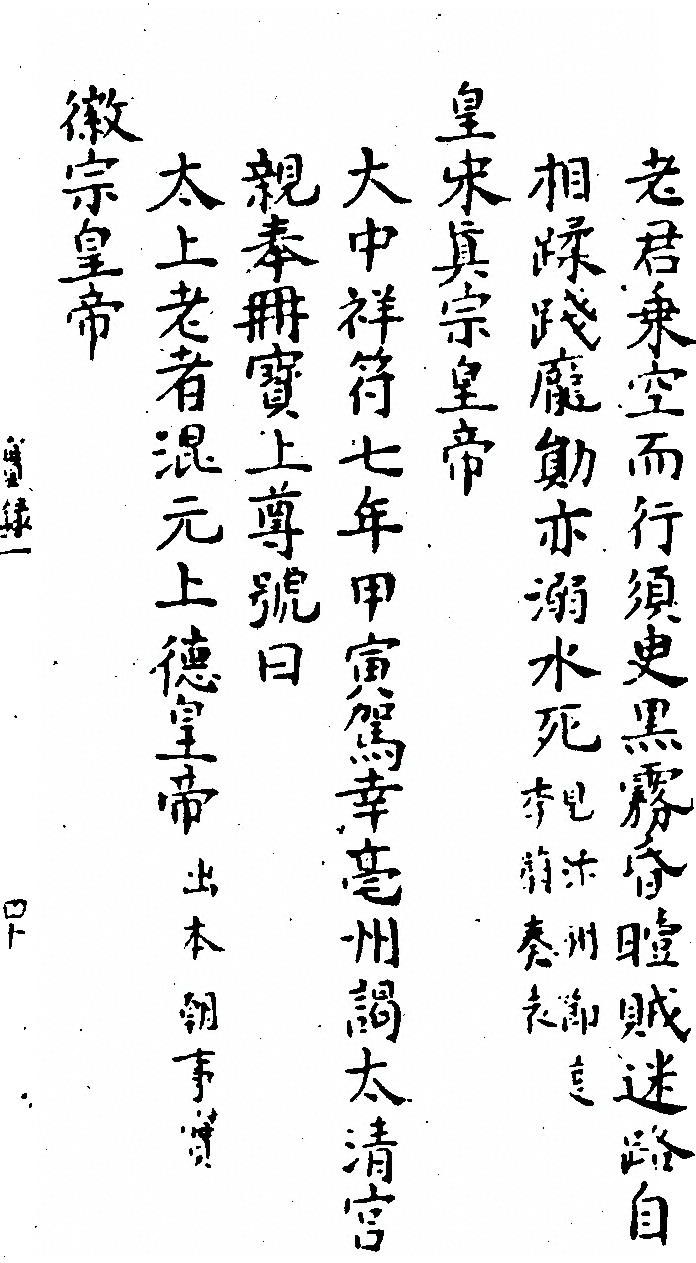 老君乗空而行須臾黒霧昏曀賊迷路自
相蹂踐龐勛亦溺水死見汴州節度
李蔚奏表
皇宋眞宗皇帝
大中祥符七年甲寅駕幸亳州謁太清宫
親奉冊寳上尊號曰
太上老者混元上德皇帝出本朝事實
徽宗皇帝
實録一